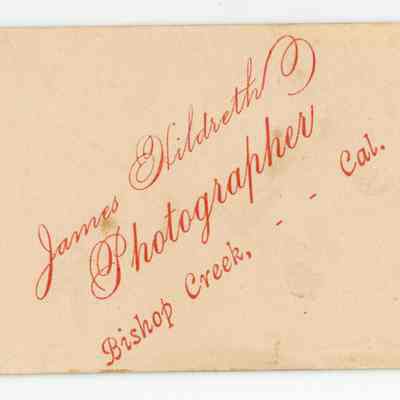 James Hildreth
Photographer
Bishop Creek, - - Cal.